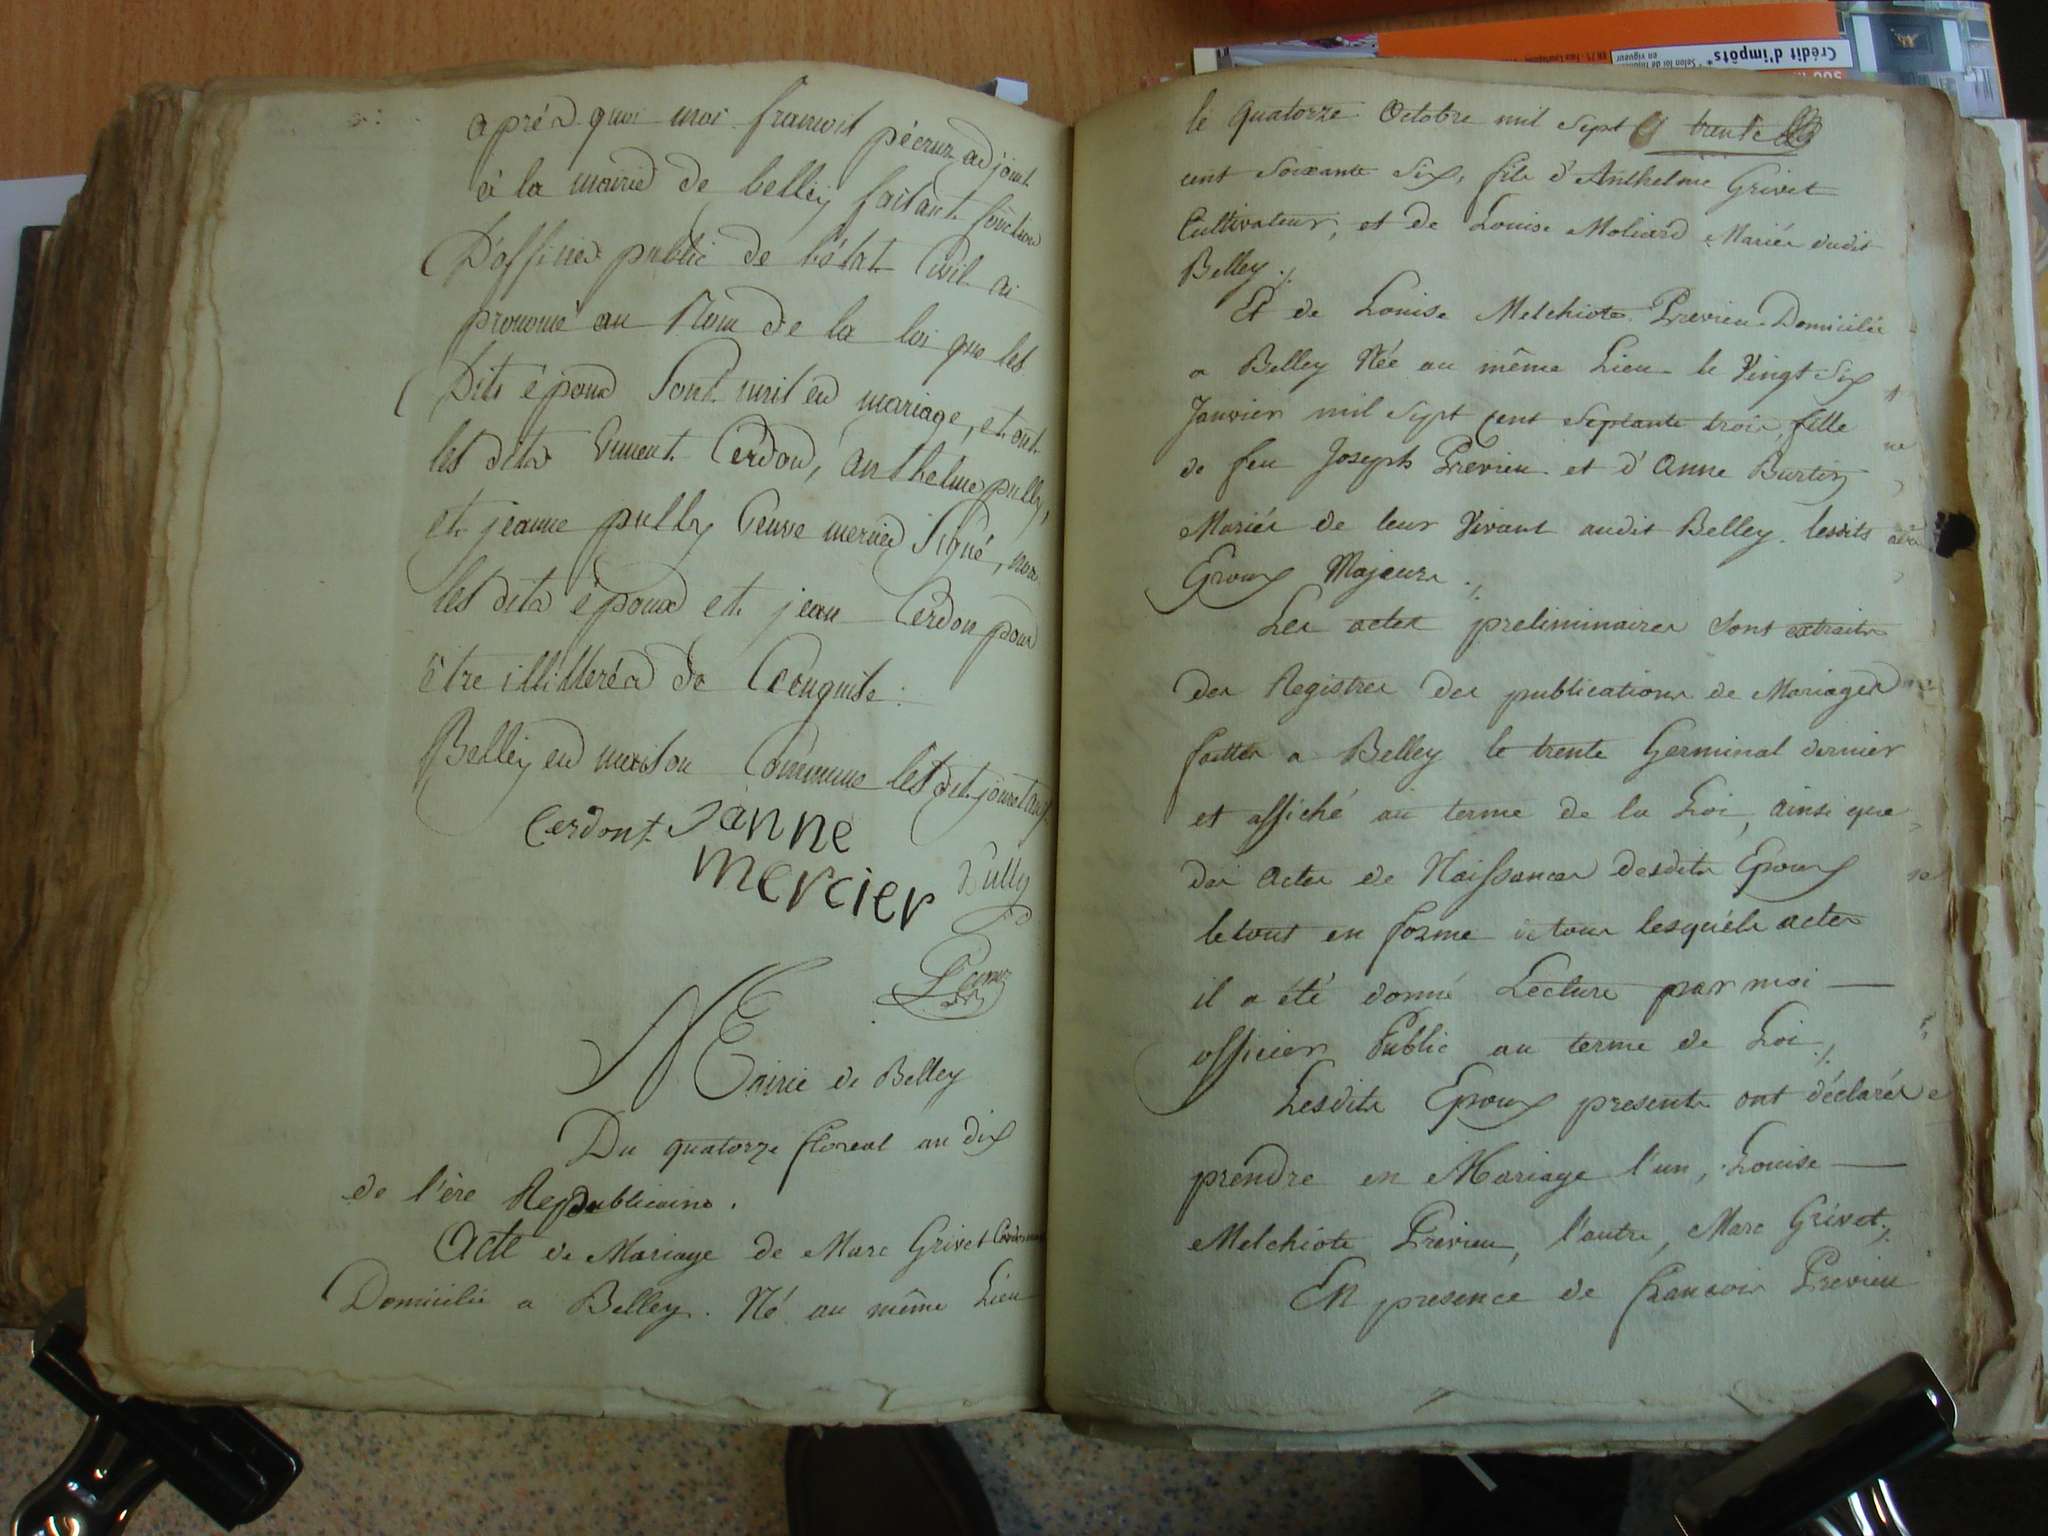 après quoi moi francois pécruz adjoint
à la mairie de belley faisant fonction
D'officier public de l'état Civil ai
prononcé au Nom de la loi que les
Dits époux Sont unis en mariage, et ont
les dits Cerdon, anthelme pully,
et jeanne pully Veuve mercier Signé, non
les dits époux et jean Cerdon pour
être illitterés de
Belley en maison Commune les dit jour et an
Cerdont Janne
mercier Pully
Mairie de Belley
Du quatorze floreal an dix
de l'ère Republicaine.
Acte de Mariage de Marc Grivet
Domicilié a Belley. Né au même Lieu
le quatorze Octobre mil Sept trente
cent Soixante Six, fils d'Anthelme Grivet
Cultivateur, et de Louise Moliard Mariés dudit
Belley ./.
Et de Louise Melchiote Previeu Domiciliée
a Belley Née au même Lieu le Vingt Six
Janvier mil Sept cent Septante trois, fille
de feu Joseph Previeu et d'Anne Burtin
Mariés de leur Vivant audit Belley. lesdits
Epoux Majeurs ./.
Les actes preliminaires Sont extraits
des Registres des publications de Mariages
faittes a Belley le trente Germinal dernier
et affiché au terme de la Loi, ainsi que
des actes de Naissances desdits Epoux
le tout en forme de tous lesquéls actes
il a été donné Lecture par moi
officier Public au terme de Loi ./.
Lesdits Epoux presents ont déclarés
prendre en Mariage l'un, Louise
Melchiote Previeu, l'autre, Marc Grivet ./.
En presence de francois Previeu
Crédit d'impôts
* Selon loi de finances
en vigueur